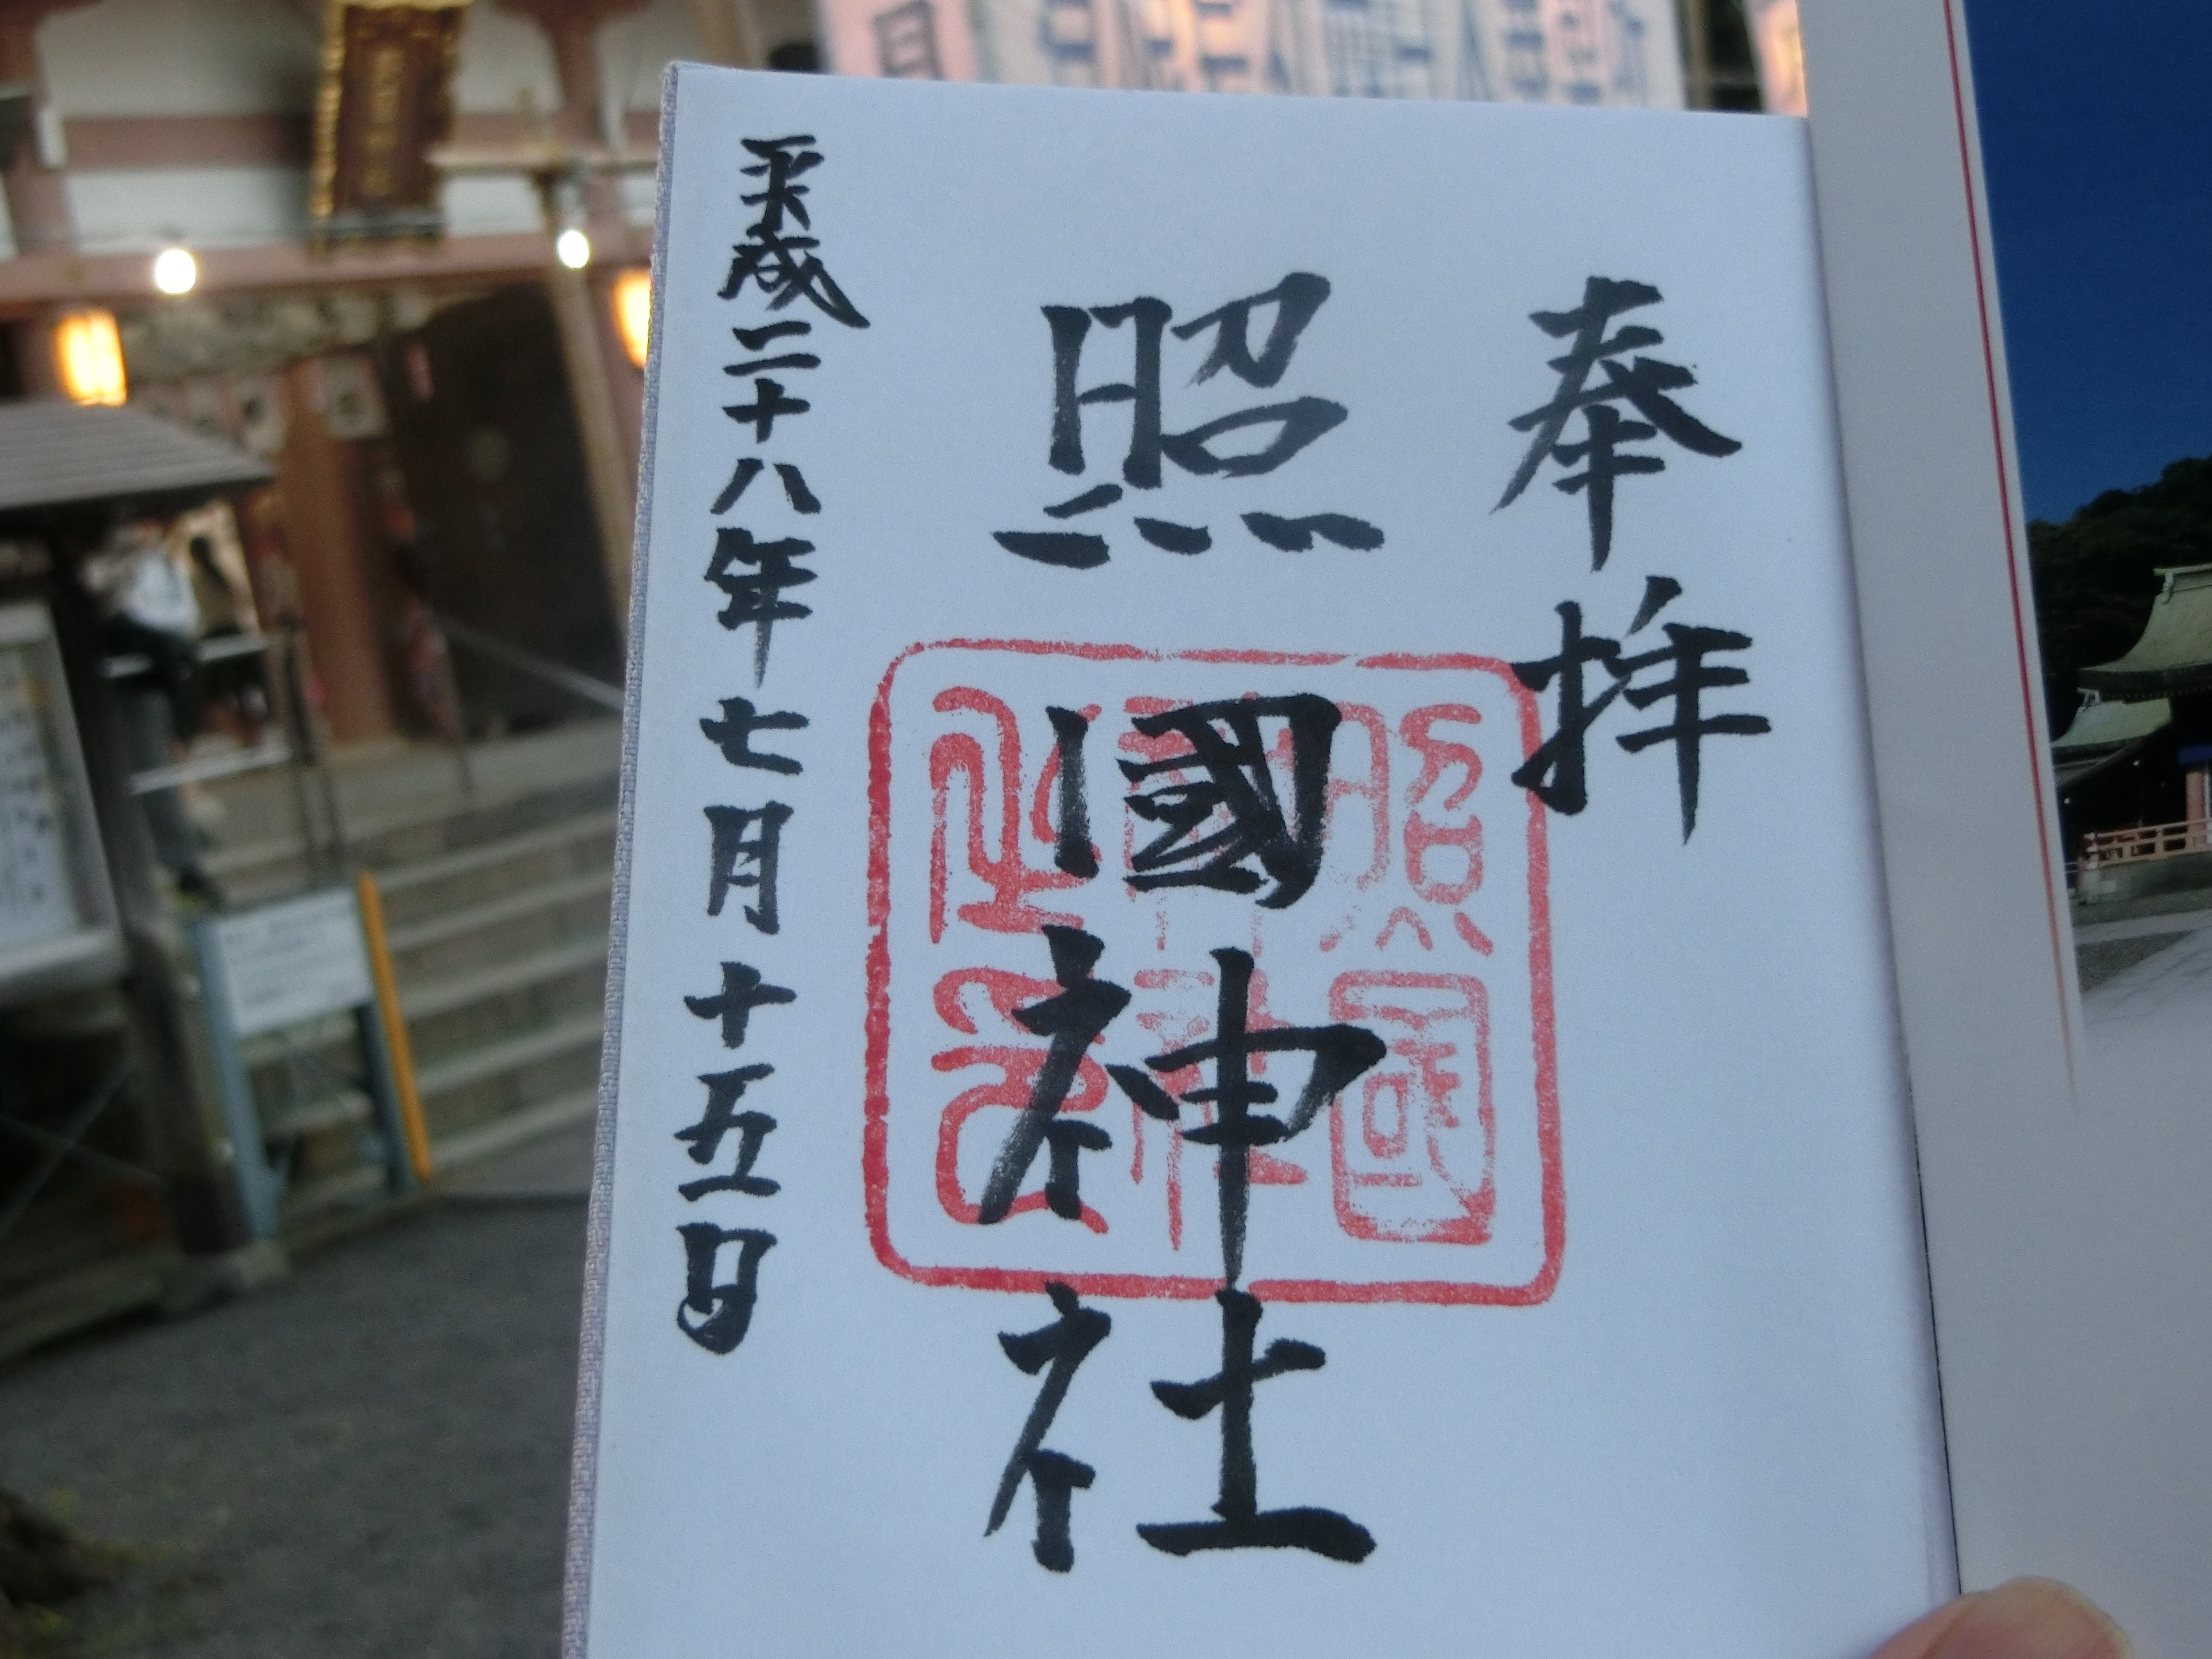 奉拝
照國神社
平成二十八年七月十五日
照國
神社
之印